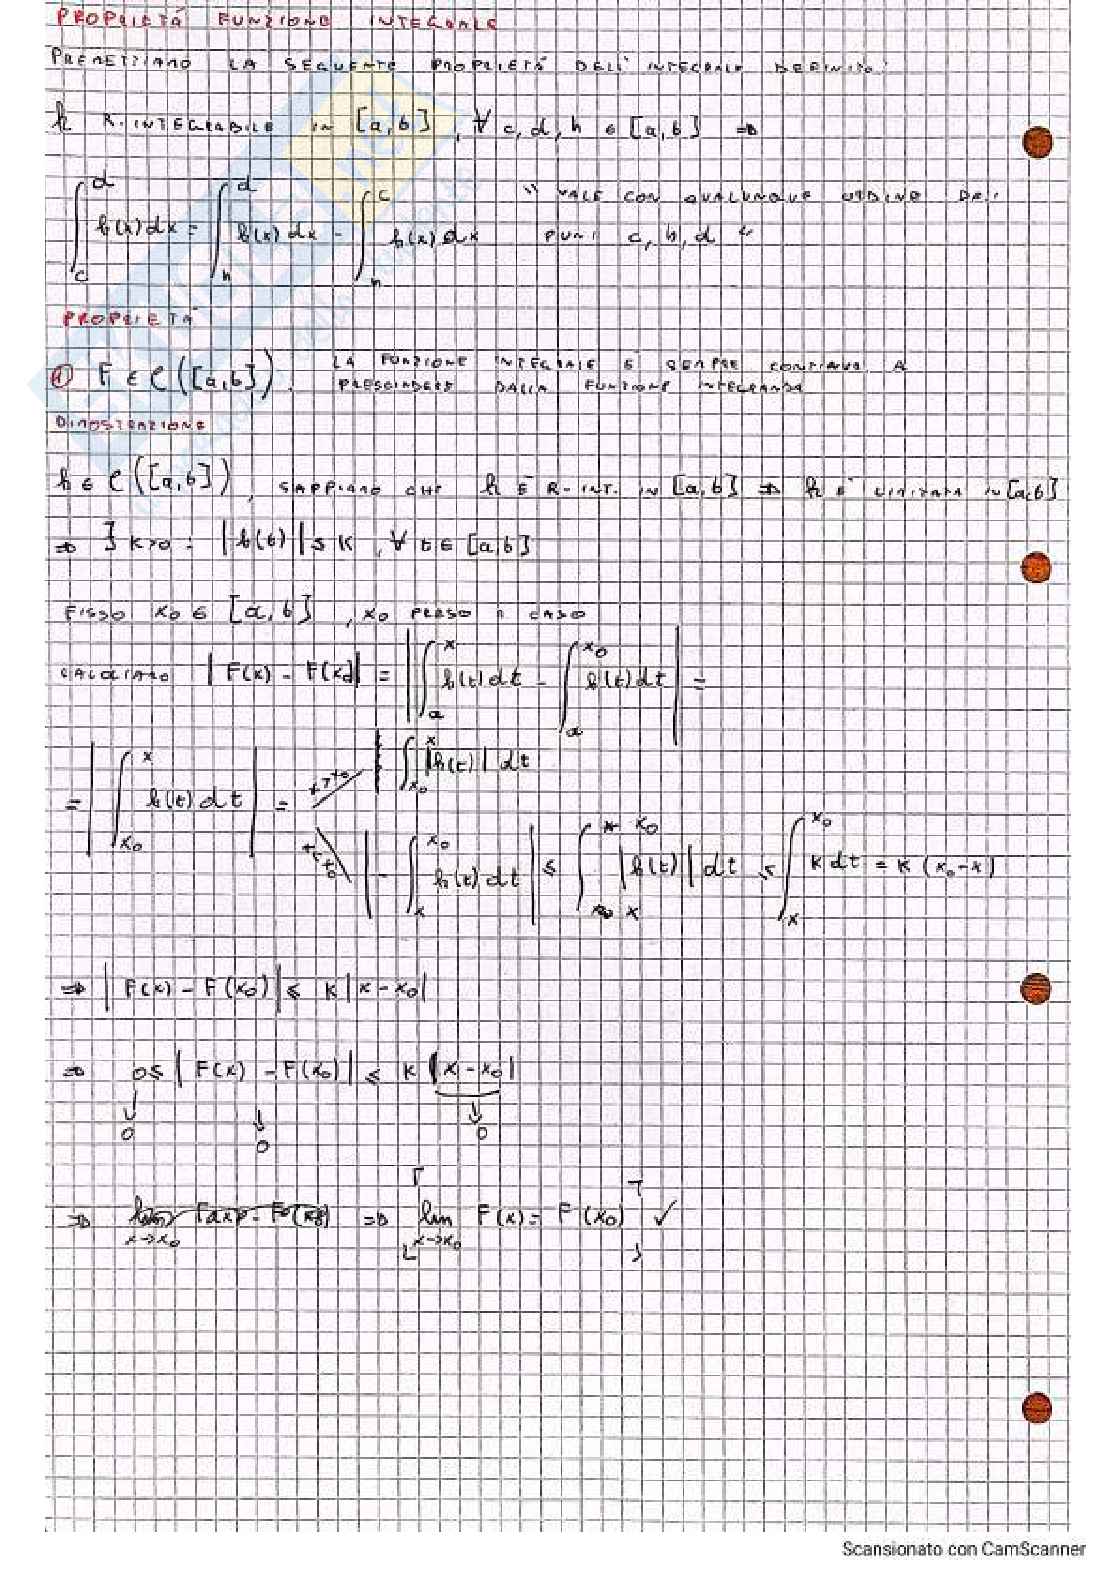 PROPRIETÁ FUNZIONE INTEGRALE
PREMETTIAMO LA SEGUENTE PROPRIETÁ DELL'INTEGRALE DEFINITO:
h R.INTEGRABILE IN [a,b], ∀ c,d,h ∈ [a,b] ⇒
∫_c^d h(x)dx = ∫_h^d h(x)dx - ∫_h^c h(x)dx " VALE CON QUALUNQUE ORDINE DEI
PUNTI c,h,d "
PROPRIETÁ
① F ∈ C([a,b]). LA FUNZIONE INTEGRALE É SEMPRE CONTINUA A
PRESCINDERE DALLA FUNZIONE INTEGRANDA
DIMOSTRAZIONE
h ∈ C([a,b]), SAPPIAMO CHE h É R-INT. IN [a,b] ⇒ h É LIMITATA IN [a,b]
⇒ ∃ K>0 : |h(t)| ≤ K, ∀ t ∈ [a,b]
FISSO x0 ∈ [a,b], x0 PRESO A CASO
CALCOLIAMO |F(x) - F(x0)| = |∫_a^x h(t)dt - ∫_a^x0 h(t)dt| =
= |∫_x0^x h(t)dt| = x>x0 ∫_x0^x |h(t)| dt
x<x0 |-∫_x^x0 h(t)dt| ≤ ∫_x^x0 |h(t)| dt ≤ ∫_x^x0 K dt = K(x0-x)
⇒ |F(x) - F(x0)| ≤ K|x-x0|
⇒ 0 ≤ |F(x) - F(x0)| ≤ K |x-x0|
↓ 0 ↓ 0 ↓ 0
⇒ lim x→x0 F(x) - F(x0) ⇒ lim x→x0 F(x) = F(x0) ✓
Scansionato con CamScanner